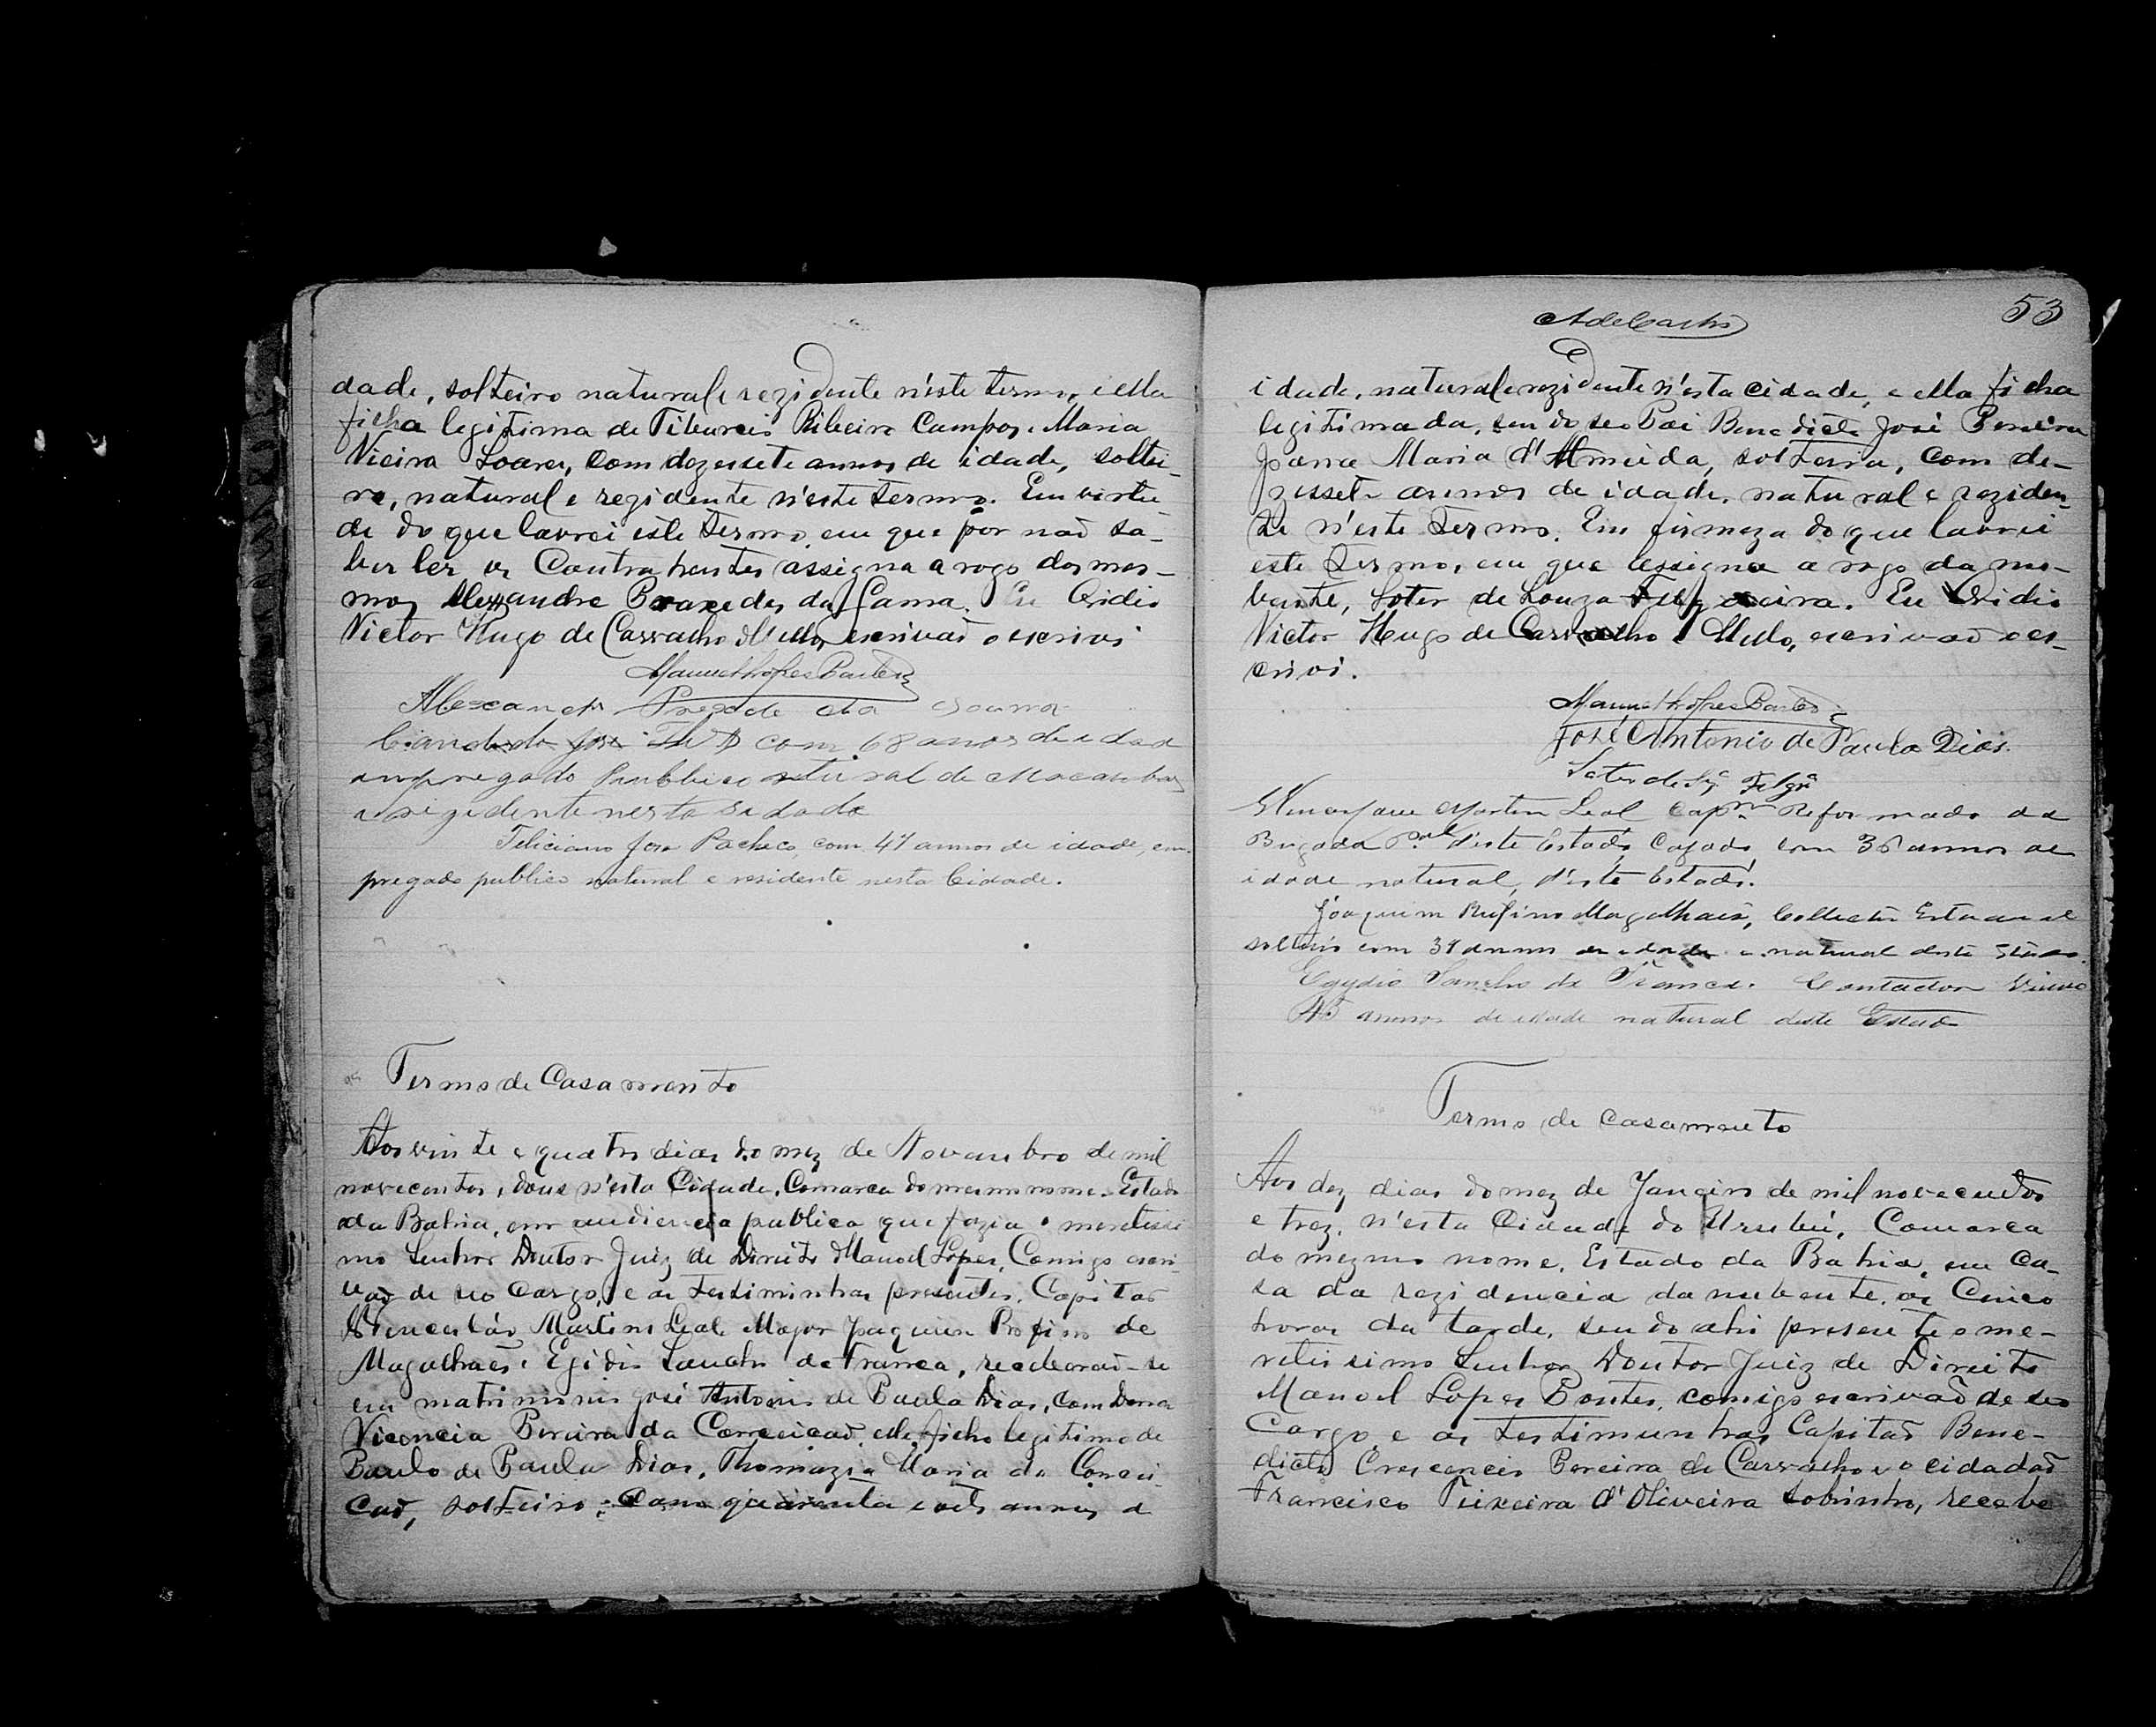 dade, solteiro natural e rezidente n'este termo, e ella
filha legitima de Tiburcio Ribeiro Campos e Maria
Vieira Soares, com dezessete annos de idade, soltei-
ra, natural e regidente n'este termo. Em virtu-
de do que lavrei este termo, em que por naõ sa-
ber ler os Contrahentes assigna a rogo dos mes-
mos Alexandre Praxedes da Gama. Eu Ovidio
Victor Hugo de Carvalho e Mello, escrivaõ o escrivi
Manuel Lopes Pontes
Alexandre Praxede da Gama
com 68 anos de idade
impregado Publico natural de Macaubas
e rezidente nesta sidade
Feliciano José Pacheco, com 41 annos de idade, em-
pregado publico natural e residente nesta Cidade.
Termo de Casamento
Aos vinte e quatro dias do mez de Novembro de mil
novecentos e dous n'esta Cidade, Comarca do mesmo nome, Estado
da Bahia, em audiencia publica que fazia o meretissi
mo Senhor Doutor Juiz de Direito Manoel Lopes, Comigo escri-
vaõ de seo Cargo, e as testiminhas presentes, Capitaõ
Wencesláo Martins Leal, Major Joaquim Rofino de
Magalhaẽs e Egidio Sancho da Franca, receberaõ-se
em matrimonio José Antonio de Paula Dias, com Dona
Vicencia Pereira da Conceicaõ, elle filho legitimo de
Paulo de Paula Dias, Thomazia Maria da Concei-
caõ, solteiro, com quarenta e oito annos de
Adelcastro
53
idade, natural e rezidente n'esta cidade, e ella filha
legitimada, sendo seo Pai Benedicto José Pereira
Joana Maria d'Almeida, solteira, com de-
zesseti annos de idade, natural e reziden-
te n'este Termo. Em firmeza do que lavrei
este Termo, em que assigna a rogo da nu-
bente, Soter de Souza Felgueira. Eu Ovidio
Victor Hugo de Carvalho e Mello, escrivaõ o es-
crivi.
Manuel Lopes Pontes
José Antonio de Paula Dias.
Soter de Sza Felgra
Martins Leal Capm Reformado da
Brigada Pal d'este Estado, Casado com 36 annos de
idade natural d'este Estado.
Joaquim Rufino Magalhaes, Collector Estadual
solteiro com 31 annos de idade e natural deste Estado.
Egydio Sancho da Franca. Contador Viuvo
45 annos de idade natural deste Estado
Termo de casamento
Aos dez dias do mez de Janeiro de mil novecentos
e trez, n'esta Cidade do Urubú, Comarca
do mezmo nome, Estado da Bahia, em ca-
sa da rezidencia da nubente, as Cinco
horas da tarde, sendo ahi presente o me-
retissimo Senhor Doutor Juiz de Direito
Manoel Lopes Pontes, comigo escrivaõ de seo
Cargo, e as testimunhas Capitaõ Bene-
dicto Crescencio Pereira de Carvalho e o cidadaõ
Francisco Teixeira d'Oliveira Sobrinho, recebe